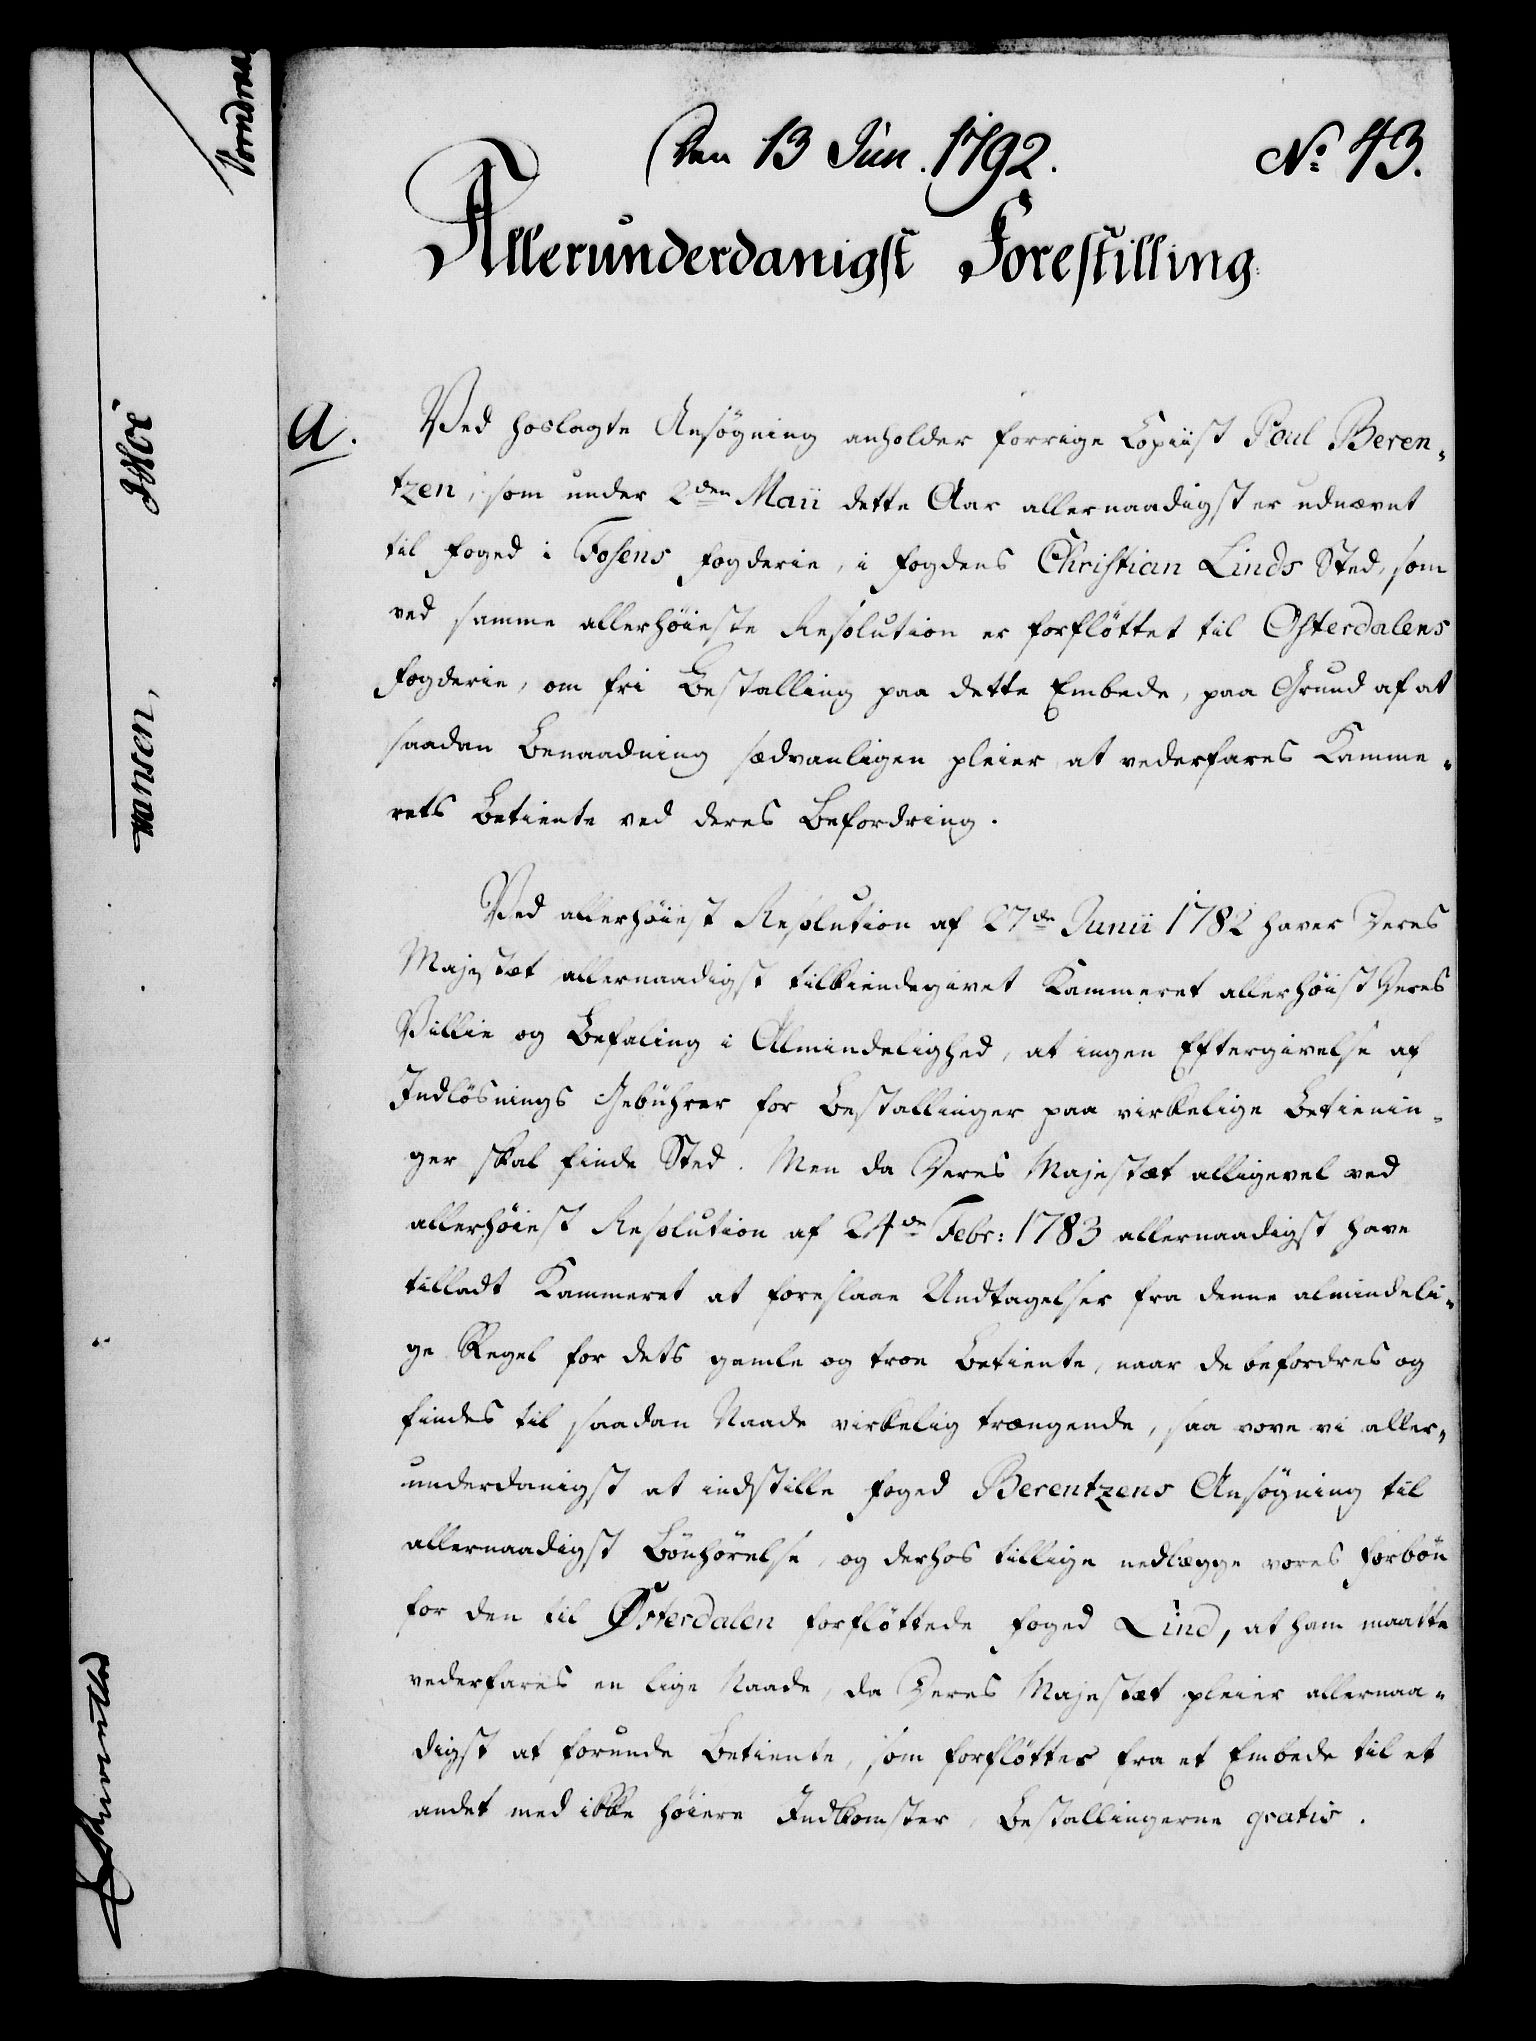 Den 13 Jun. 1792. No: 43.
Allerunderdanigst Forestilling.
A. Ved hoslagte Ansøgning anholder forrige Copiist Poul Beren-
tzen, som under 2den Maii dette Aar allernaadigst er udnævnt
til Foged i Fosens Fogderie, i Fogdens Christian Linds Sted, som
ved samme allerhøieste Resolution er forfløttet til Østerdalens
Fogderie, om fri Bestalling paa dette Embede, paa Grund af at
saadan Benaadning sædvanligen pleier at vederfares Kamme-
rets Betiente ved deres Befordring.
Ved allerhøiest Resolution af 27de Junii 1782 haver Deres
Majestæt allernaadigst tilkiendegivet Kammeret allerhøist Deres
Villie og Befaling i Almindelighed, at ingen Eftergivelse af
Indløsnings Gebührer for Bestallinger paa virkelige Betienin-
ger skal finde Sted. Men da Deres Majestæt alligevel ved
allerhøiest Resolution af 24de Febr: 1783 allernaadigst have
tilladt Kammeret at foreslaae Undtagelser fra denne almindeli-
ge Regel for dets gamle og troe Betiente, naar de befordres og
findes til saadan Naade virkelig trængende, saa vove vi aller-
underdanigst at indstille Foged Berentzens Ansøgning til
allernaadigst Bönhørelse, og derhos tillige nedlægge vores Forbön
for den til Østerdalen forfløttede Foged Lind, at ham maatte
vederfares en lige Naade, da Deres Majestæt pleier allernaa-
digst at forunde Betiente, som forfløttes fra et Embede til et
andet med ikke høiere Indkomster, Bestallingerne gratis.